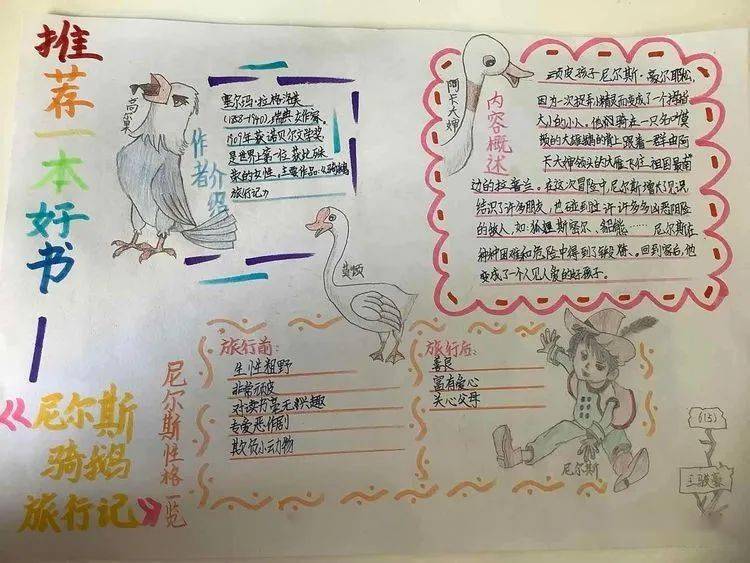 推荐一本好书
《尼尔斯
骑鹅
旅行记》
高果
作者介绍
塞尔玛·拉格洛夫
(1858-1940),瑞典女作家,
1909年获诺贝尔文学奖
是世界上第一位获此殊
荣的女性,主要作品:《骑鹅
旅行记》
阿卡大婶
内容概述
顽皮孩子尼尔斯·豪尔耶松,
因为一次捉弄小精灵而变成了一个拇指
大小的小人,他骑在一只名叫莫
顿的大雄鹅的背上跟着一群由阿
卡大婶领头的大雁飞往祖国最南
边的拉普兰。在这次冒险中尼尔斯增长了见识
结识了许多朋友,也碰到过许许多多凶恶阴险
的敌人,如:狐狸斯密尔、貂熊……尼尔斯在
种种困难和危险中得到了锻炼、回到家后,他
变成了一个人见人爱的好孩子。
莫顿
尼尔斯性格一览
旅行前:
生性粗野
非常顽皮
对读书毫无兴趣
专爱恶作剧
欺负小动物
旅行后:
善良
富有爱心
关心父母
尼尔斯
(15)